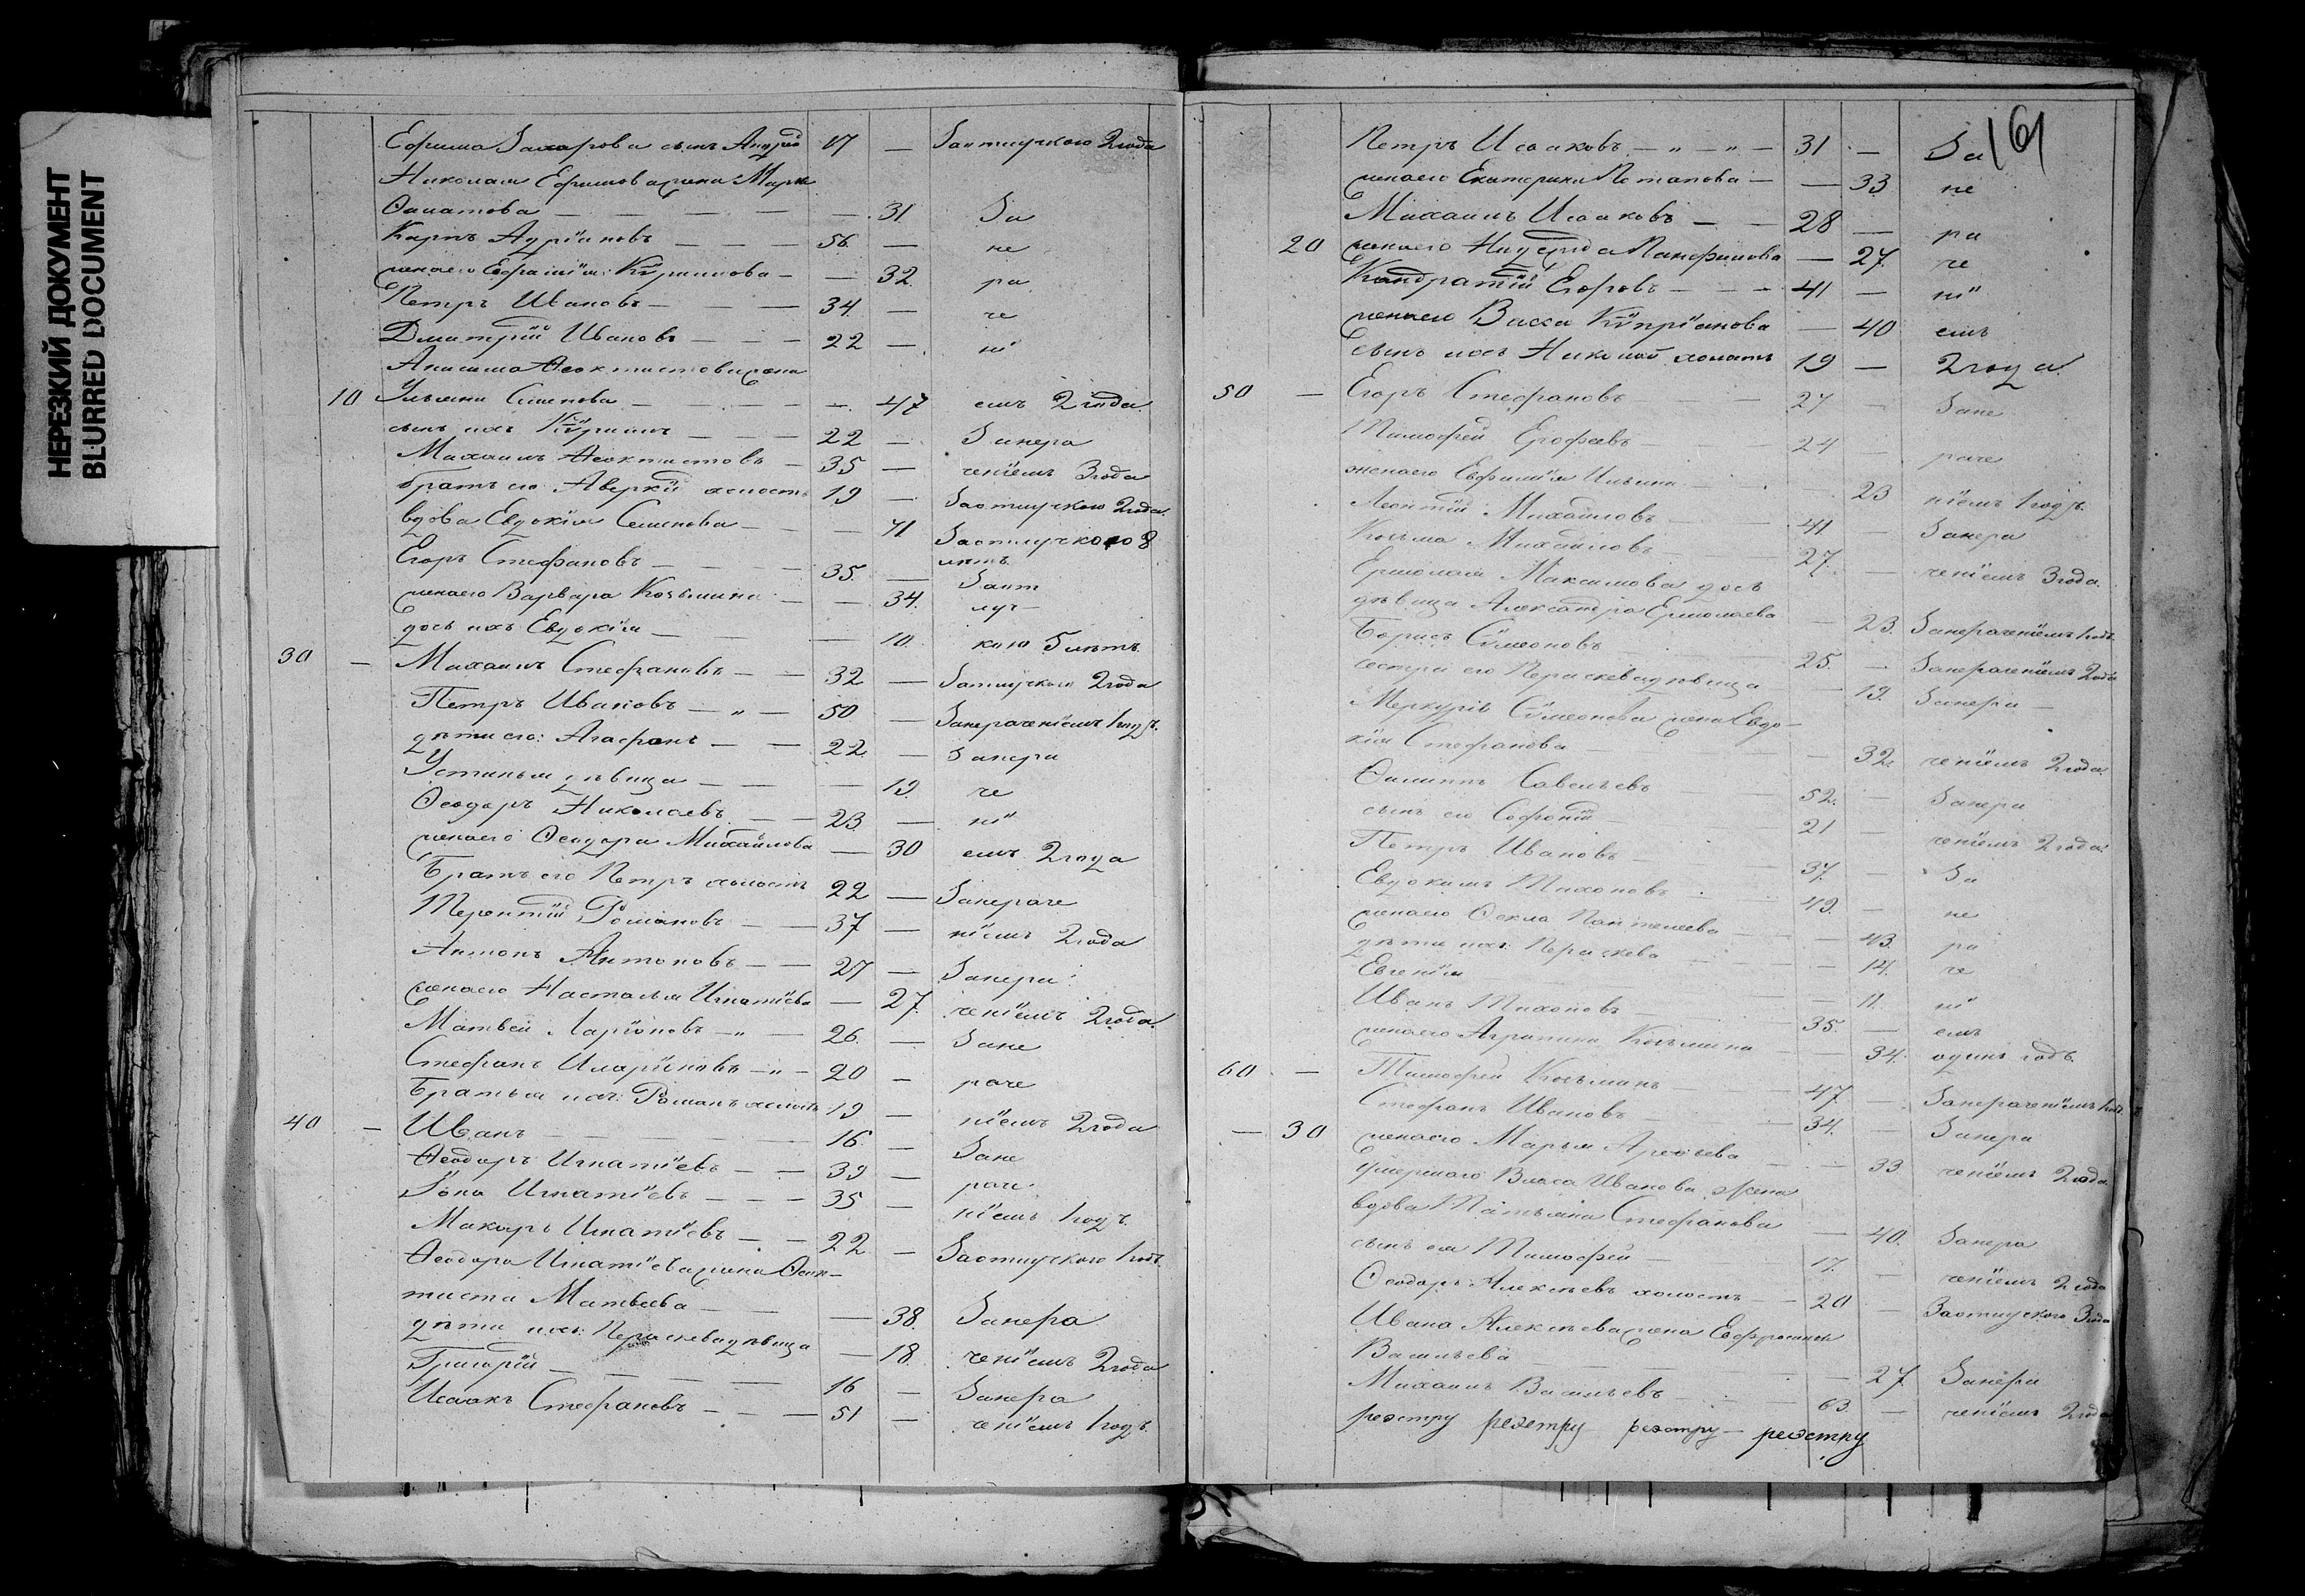 НЕРЕЗКИЙ ДОКУМЕНТ
BLURRED DOCUMENT
Ефима Захарова сынъ Андрей 17 — За отлучкою 2 года
Николая Ефимова жена Марья
Филатова — — — — — 31 За
Карпъ Адріановъ — — — 56 — не
жена его Евфимія Кѵрилова — — 32. ра
Петръ Ивановъ — — 34. — че
Дмитрій Ивановъ — — — 22 — ні
Анисима Ѳеоктистова жена
10 Ульяна Симонова — — — — 47 емъ 2 года.
сынъ ихъ Кѵрилъ — — — 22 — За нера
Михаилъ Ѳеоктистовъ — 35 — ченіемъ 3 года
братъ его Аверкій холостъ 19 — За отлучкою 2 года.
вдова Евдокія Семенова — — 71 За отлучкою 8
лѣтъ.
Егоръ Стефановъ — — — 35. — За от
жена его Варвара Козьмина — — 34. луч-
дочь ихъ Евдокія — — — 10. кою 5 лѣтъ
30 — Михаилъ Стефановъ — — 32 — За отлучкою 2 года
Петръ Ивановъ — „ — 50 — За нераченіемъ 1 годъ.
дѣти его: Агафонъ — — 22 — За нера
Устинья дѣвица — — — 19. че
Ѳеодоръ Николаевъ — — 23. — ні
жена его Ѳеодора Михайлова — 30 емъ 2 года
Братъ его Петръ холостъ 22 — За нераче
Терентій Романовъ — — 37 — ніемъ 2 года
Антонъ Антоновъ — — 27 — За нера:
жена его Настасья Игнатіева — 27. ченіемъ 2 года.
Матвей Ларіоновъ — „ — 26. — За не
Стефанъ Иларіоновъ — „ — 20 — раче
Братья ихъ: Романъ холостъ 19 — ніемъ 2 года
40 — Иванъ — — — 16. — За не
Ѳеодоръ Игнатіевъ — — 39 — раче
Іона Игнатіевъ — — — 35 — ніемъ 1 годъ.
Макаръ Игнатіевъ — — 22 — За отлучкою 1 годъ.
Ѳеодора Игнатіева жена Ѳеок-
тиста Матвеева — — — 38. За нера
дѣти ихъ: Параскева дѣвица — 18. ченіемъ 2 года
Григорій — — — 16 — За нера
Исаакъ Стефановъ — — — 51 — ченіемъ 1 годъ.
161
Петръ Исааковъ — „ — „ — 31 — За
жена его Екатерина Потапова — — 33 не
Михаилъ Исааковъ — — 28 — ра
20 жена его Панфилова — 27. че
Кондратій Егоровъ — — — 41 — ні
жена его Васса Кѵпріанова — 40 емъ
сынъ ихъ Николай холостъ 19 — 2 года.
50 — Егоръ Стефановъ — — 27 — За не
Тимофей Ерофеевъ — 24 — раче
жена его Евфимія Ильина — 23 ніемъ 1 годъ.
Леонтій Михайловъ — 41 — За нера
Козьма Михайловъ — 27. — ченіемъ 3 года.
Ермолая Максимова дочь
дѣвица Александра Ермолаева — 23. За нераченіемъ 1 годъ.
Борисъ Сѵмеоновъ — 25. — За нераченіемъ 2 года
сестра его Параскева дѣвица — 19. За нера —
Меркурія Сѵмеонова жена Евдо-
кія Стефанова — — 32. ченіемъ 2 года.
Филиппъ Савельевъ — 52. — За нера
сынъ его Софроній — 21 — ченіемъ 2 года.
Петръ Ивановъ — 37. — За
Евдокимъ Тихоновъ — 49. — не
жена его Ѳекла Пантелеева — — 43. ра
дѣти ихъ: Параскева — — 14. че
Евгенія — — 11. ні
Иванъ Тихоновъ — 35. — емъ
жена его Агрипина Козьмина — — 34. одинъ годъ.
60 — Тимофей Козьминъ — 47. — За нераченіемъ 1 годъ
Стефанъ Ивановъ — 34. — За нера
— 30 жена его Марья Арефьева — — 33 ченіемъ 2 года.
Умершаго Власа Иванова жена
вдова Татьяна Стефанова — 40. За нера
сынъ ея Тимофей — 17. — ченіемъ 2 года
Ѳеодоръ Алексѣевъ холостъ — 20 — За отлучкою 3 года
Ивана Алексѣева жена Евфросинья
Васильева — — — 27. За нера
Михаилъ Васильевъ — 63. — ченіемъ 2 года
реэстру реэстру реэстру — реэстру